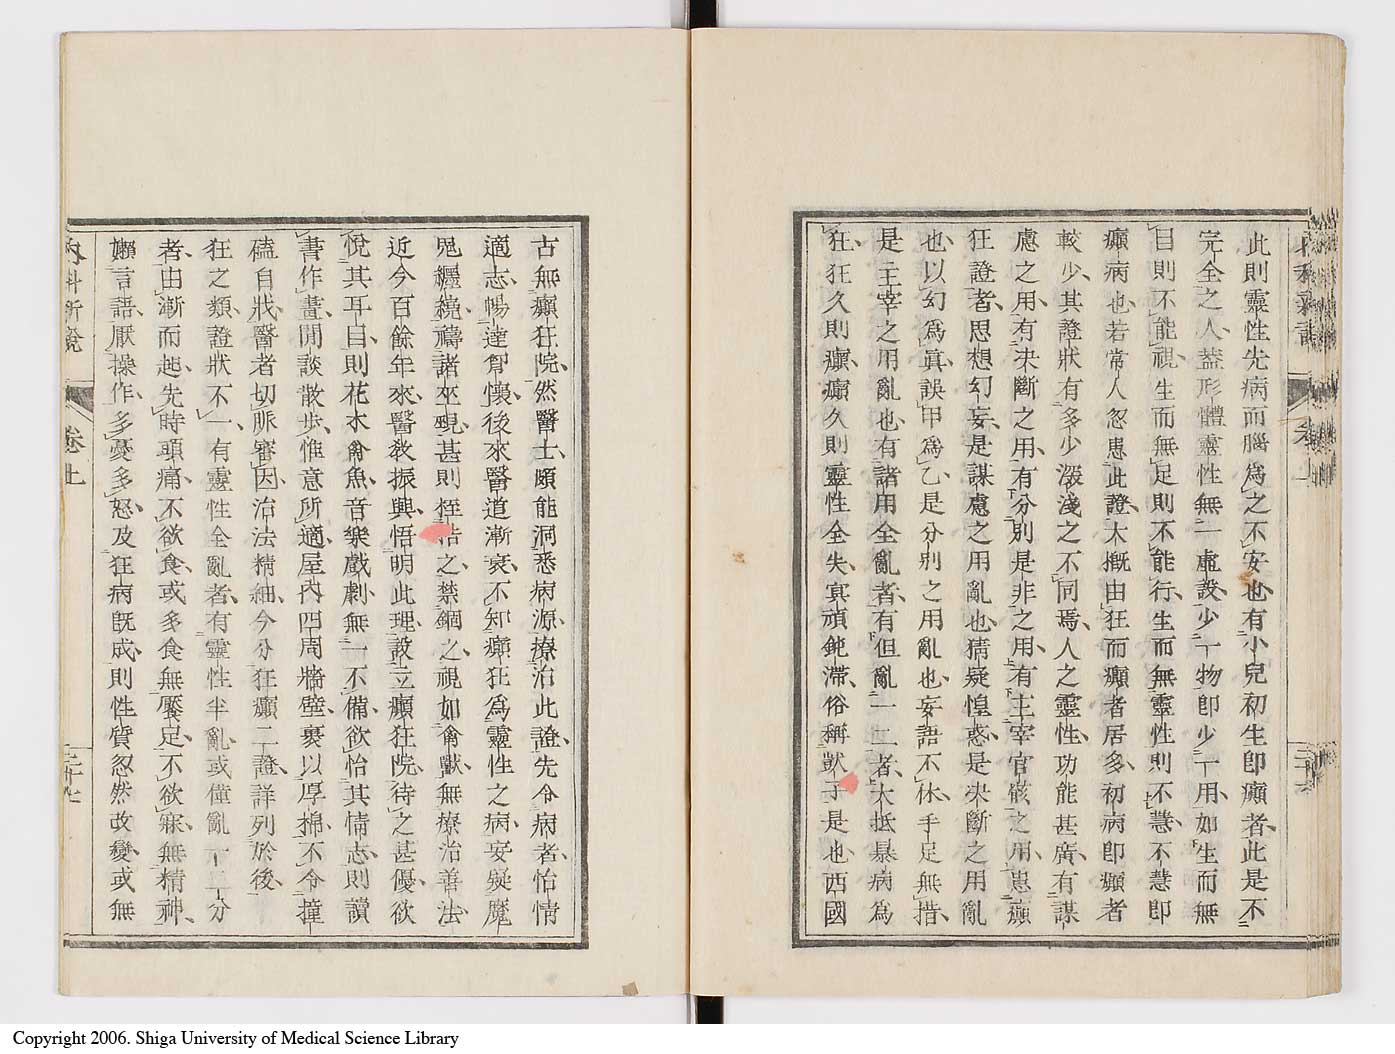 此則靈性先病而腦爲之不安也有小兒初生卽癲者此是不
完全之人蓋形體靈性無一虛設少一物卽少一用如生而無
目則不能視生而無足則不能行生而無靈性則不慧不慧卽
癲病也若常人忽患此證大槪由狂而癲者居多初病卽癲者
較少其證狀有多少深淺之不同焉人之靈性功能甚廣有謀
慮之用有決斷之用有分別是非之用有主宰官骸之用患癲
狂證者思想幻妄是謀慮之用亂也猜疑惶惑是決斷之用亂
也以幻爲眞誤甲爲乙是分別之用亂也妄語不休手足無措
是主宰之用亂也有諸用全亂者有但亂一二者大抵暴病爲
狂狂久則癲癲久則靈性全失冥頑鈍滯俗稱獃子是也西國
古無癲狂院然醫士頗能洞悉病源療治此證先令病者怡情
適志暢達胷懷後來醫道漸衰不知癲狂爲靈性之病妄疑魔
鬼纏繞禱諸巫覡甚則桎梏之禁錮之視如禽獸無療治善法
近今百餘年來醫敎振興悟明此理設立癲狂院待之甚優欲
悅其耳目則花木禽魚音樂戲劇無一不備欲怡其情志則讀
書作畫閒談散步惟意所適屋內四周牆壁裹以厚棉不令撞
磕自戕醫者切脈審因治法精細今分狂癲二證詳列於後
狂之類證狀不一有靈性全亂者有靈性半亂或僅亂一二分
者由漸而起先時頭痛不欲食或多食無饜足不欲寐無精神
嬾言語厭操作多憂多怒及狂病旣成則性質忽然改變或無
內科新說
卷上
二十七
Copyright 2006. Shiga University of Medical Science Library